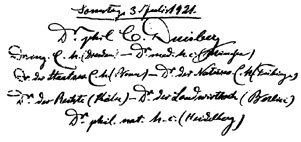 Sonntag 3 Juli 1921.
Dr phil C. Duisberg
Dr ing. e. h. (Dresden) – Dr med. h. c. (München)
Dr der Staatsw. – Dr der Naturw. (Tübingen)
Dr der Rechte (Köln) – Dr der Landwirthsch (Berlin)
Dr. phil. nat. h. c. (Heidelberg)